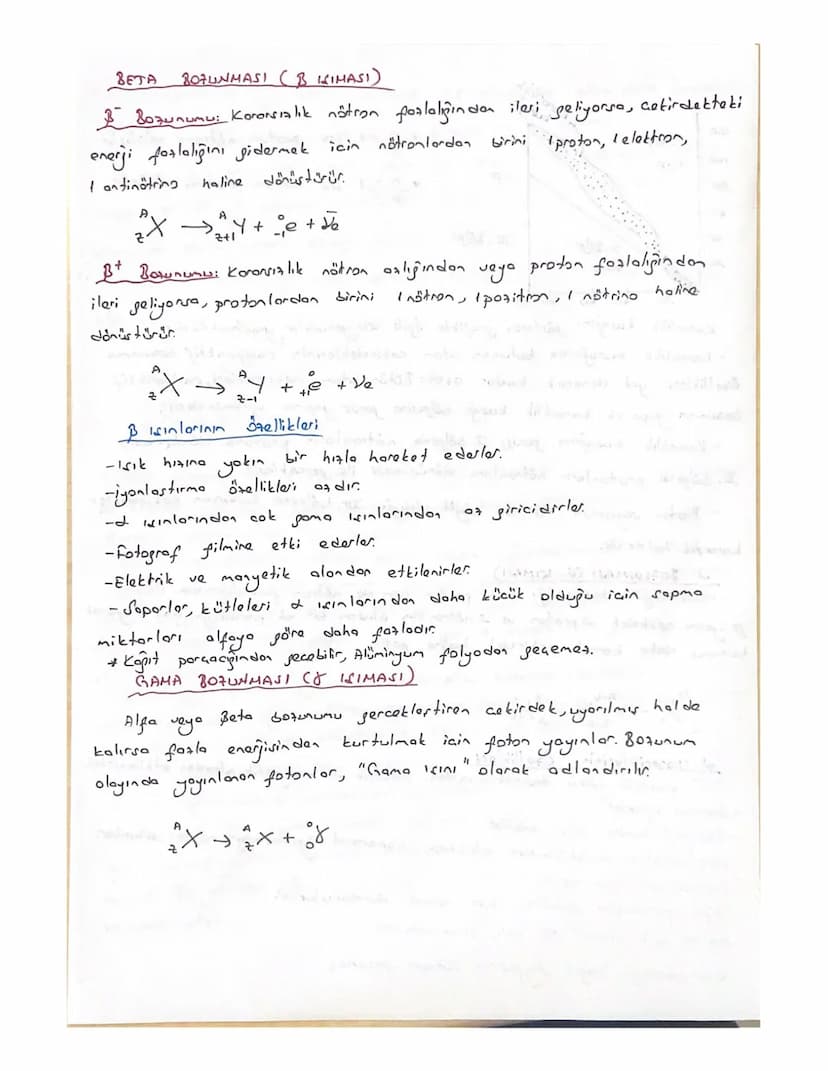 BETA BOZUNMASI (β IŞIMASI)
β⁻ Bozunumu: Kararsızlık nötron fazlalığından ileri geliyorsa, çekirdekteki
enerji fazlalığını gidermek için nötronlardan birini 1 proton, 1 elektron,
1 antinötrino haline dönüştürür.
ᴬ_Z X → ᴬ_Z+1 Y + ⁰_-1 e + ν̅e
β⁺ Bozunumu: Kararsızlık nötron azlığından veya proton fazlalığından
ileri geliyorsa, protonlardan birini 1 nötron, 1 pozitron, 1 nötrino haline
dönüştürür.
ᴬ_Z X → ᴬ_Z-1 Y + ⁰_+1 e + νe
β ışınlarının Özellikleri
-Işık hızına yakın bir hızla hareket ederler.
-iyonlaştırma özellikleri azdır.
-α ışınlarından çok gama ışınlarından az giricidirler.
-Fotoğraf filmine etki ederler.
-Elektrik ve manyetik alandan etkilenirler.
- Saparlar, kütleleri α ışınlarından daha küçük olduğu için sapma
miktarları alfaya göre daha fazladır.
* Kağıt parçacığından geçebilir, Alüminyum folyodan geçemez.
GAMA BOZUNMASI (γ IŞIMASI)
Alfa veya Beta bozunumu gerçekleştiren çekirdek, uyarılmış halde
kalırsa fazla enerjisinden kurtulmak için foton yayınlar. Bozunum
olayında yayınlanan fotonlar, "Gama ışını" olarak adlandırılır.
ᴬ_Z X → ᴬ_Z X + ⁰_0 γ